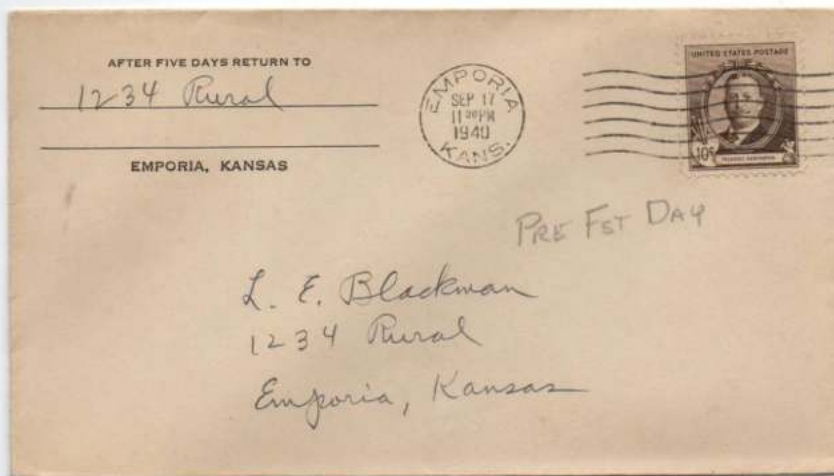 AFTER FIVE DAYS RETURN TO
1234 Rural
EMPORIA, KANSAS
EMPORIA
SEP 17
11 30 PM
1940
KANS.
UNITED STATES POSTAGE
10¢
PRE FST DAY
L. E. Blackman
1234 Rural
Emporia, Kansas